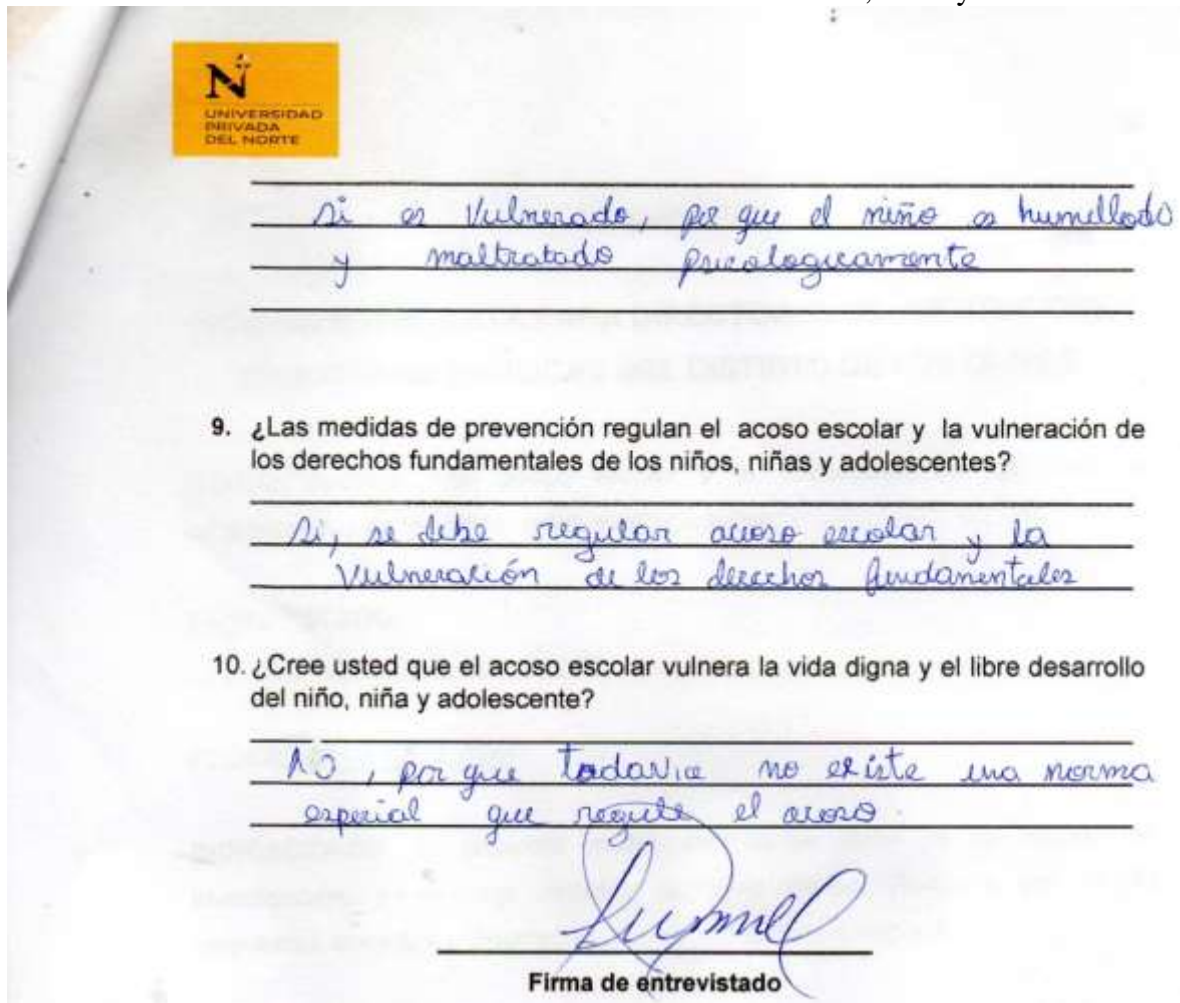 N
UNIVERSIDAD
PRIVADA
DEL NORTE
Si es Vulnerado, por que el niño es humillado
y maltratado psicologicamente
9. ¿Las medidas de prevención regulan el acoso escolar y la vulneración de
los derechos fundamentales de los niños, niñas y adolescentes?
Si, se debe regular acoso escolar y la
Vulneración de los derechos fundamentales
10. ¿Cree usted que el acoso escolar vulnera la vida digna y el libre desarrollo
del niño, niña y adolescente?
NO, por que todavia no existe una norma
especial que regule el acoso.
Firma de entrevistado